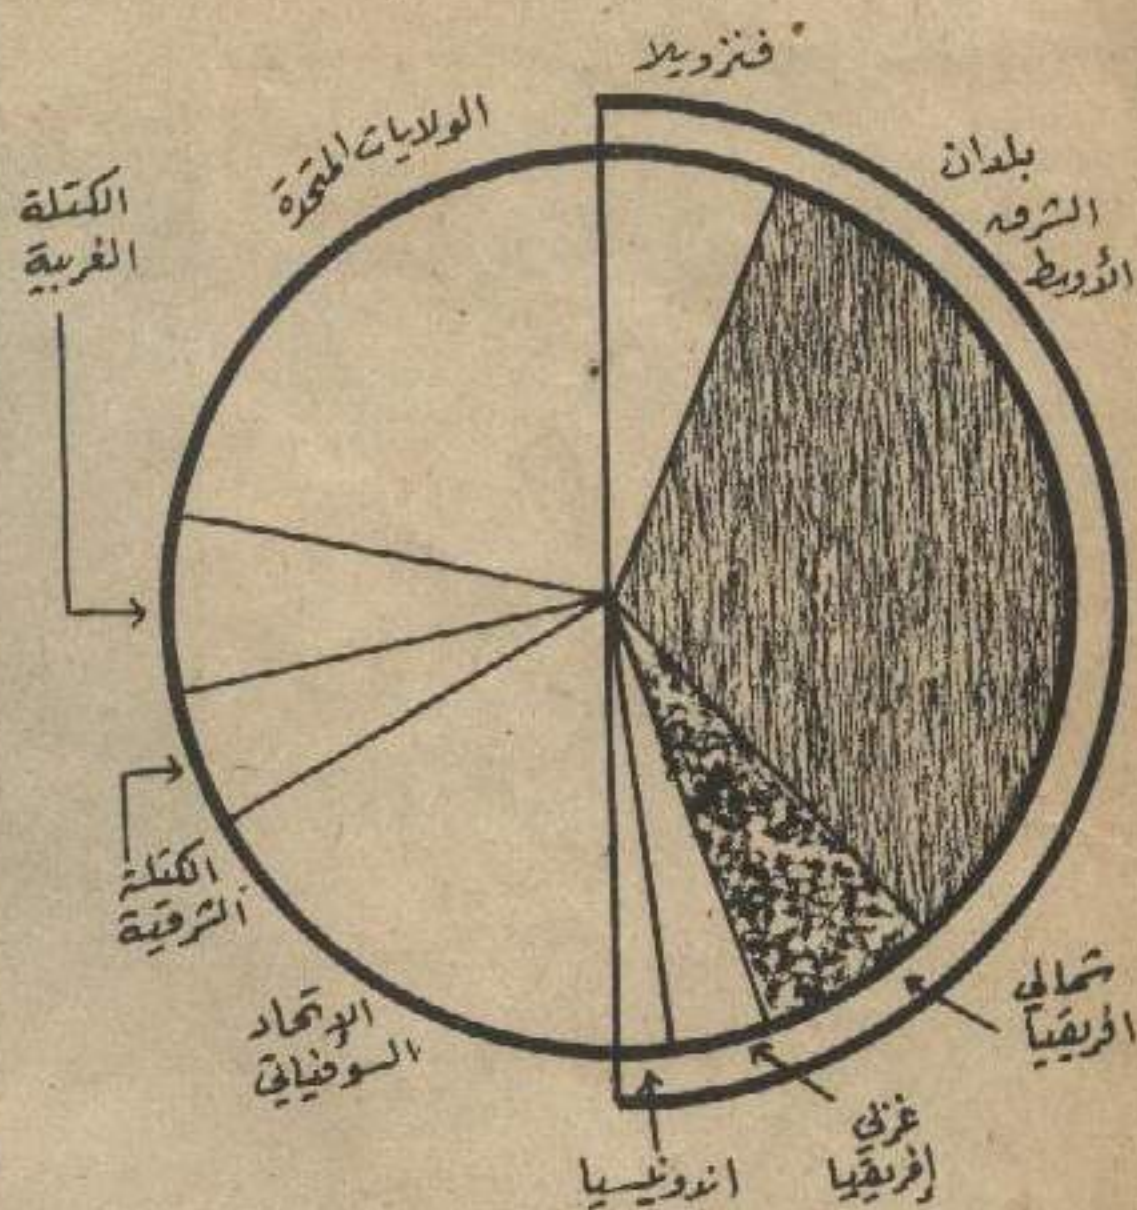 فنزويلا
الولايات المتحدة
بلدان
الشرق
الأوسط
الكتلة
الغربية
الكتلة
الشرقية
الإتحاد
السوفياتي
شمالي
افريقيا
غربي
إفريقيا
اندونيسيا